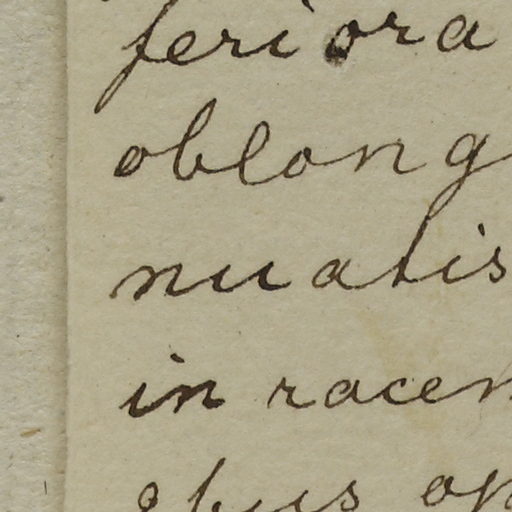 feriora
oblong
nuatis
in racem